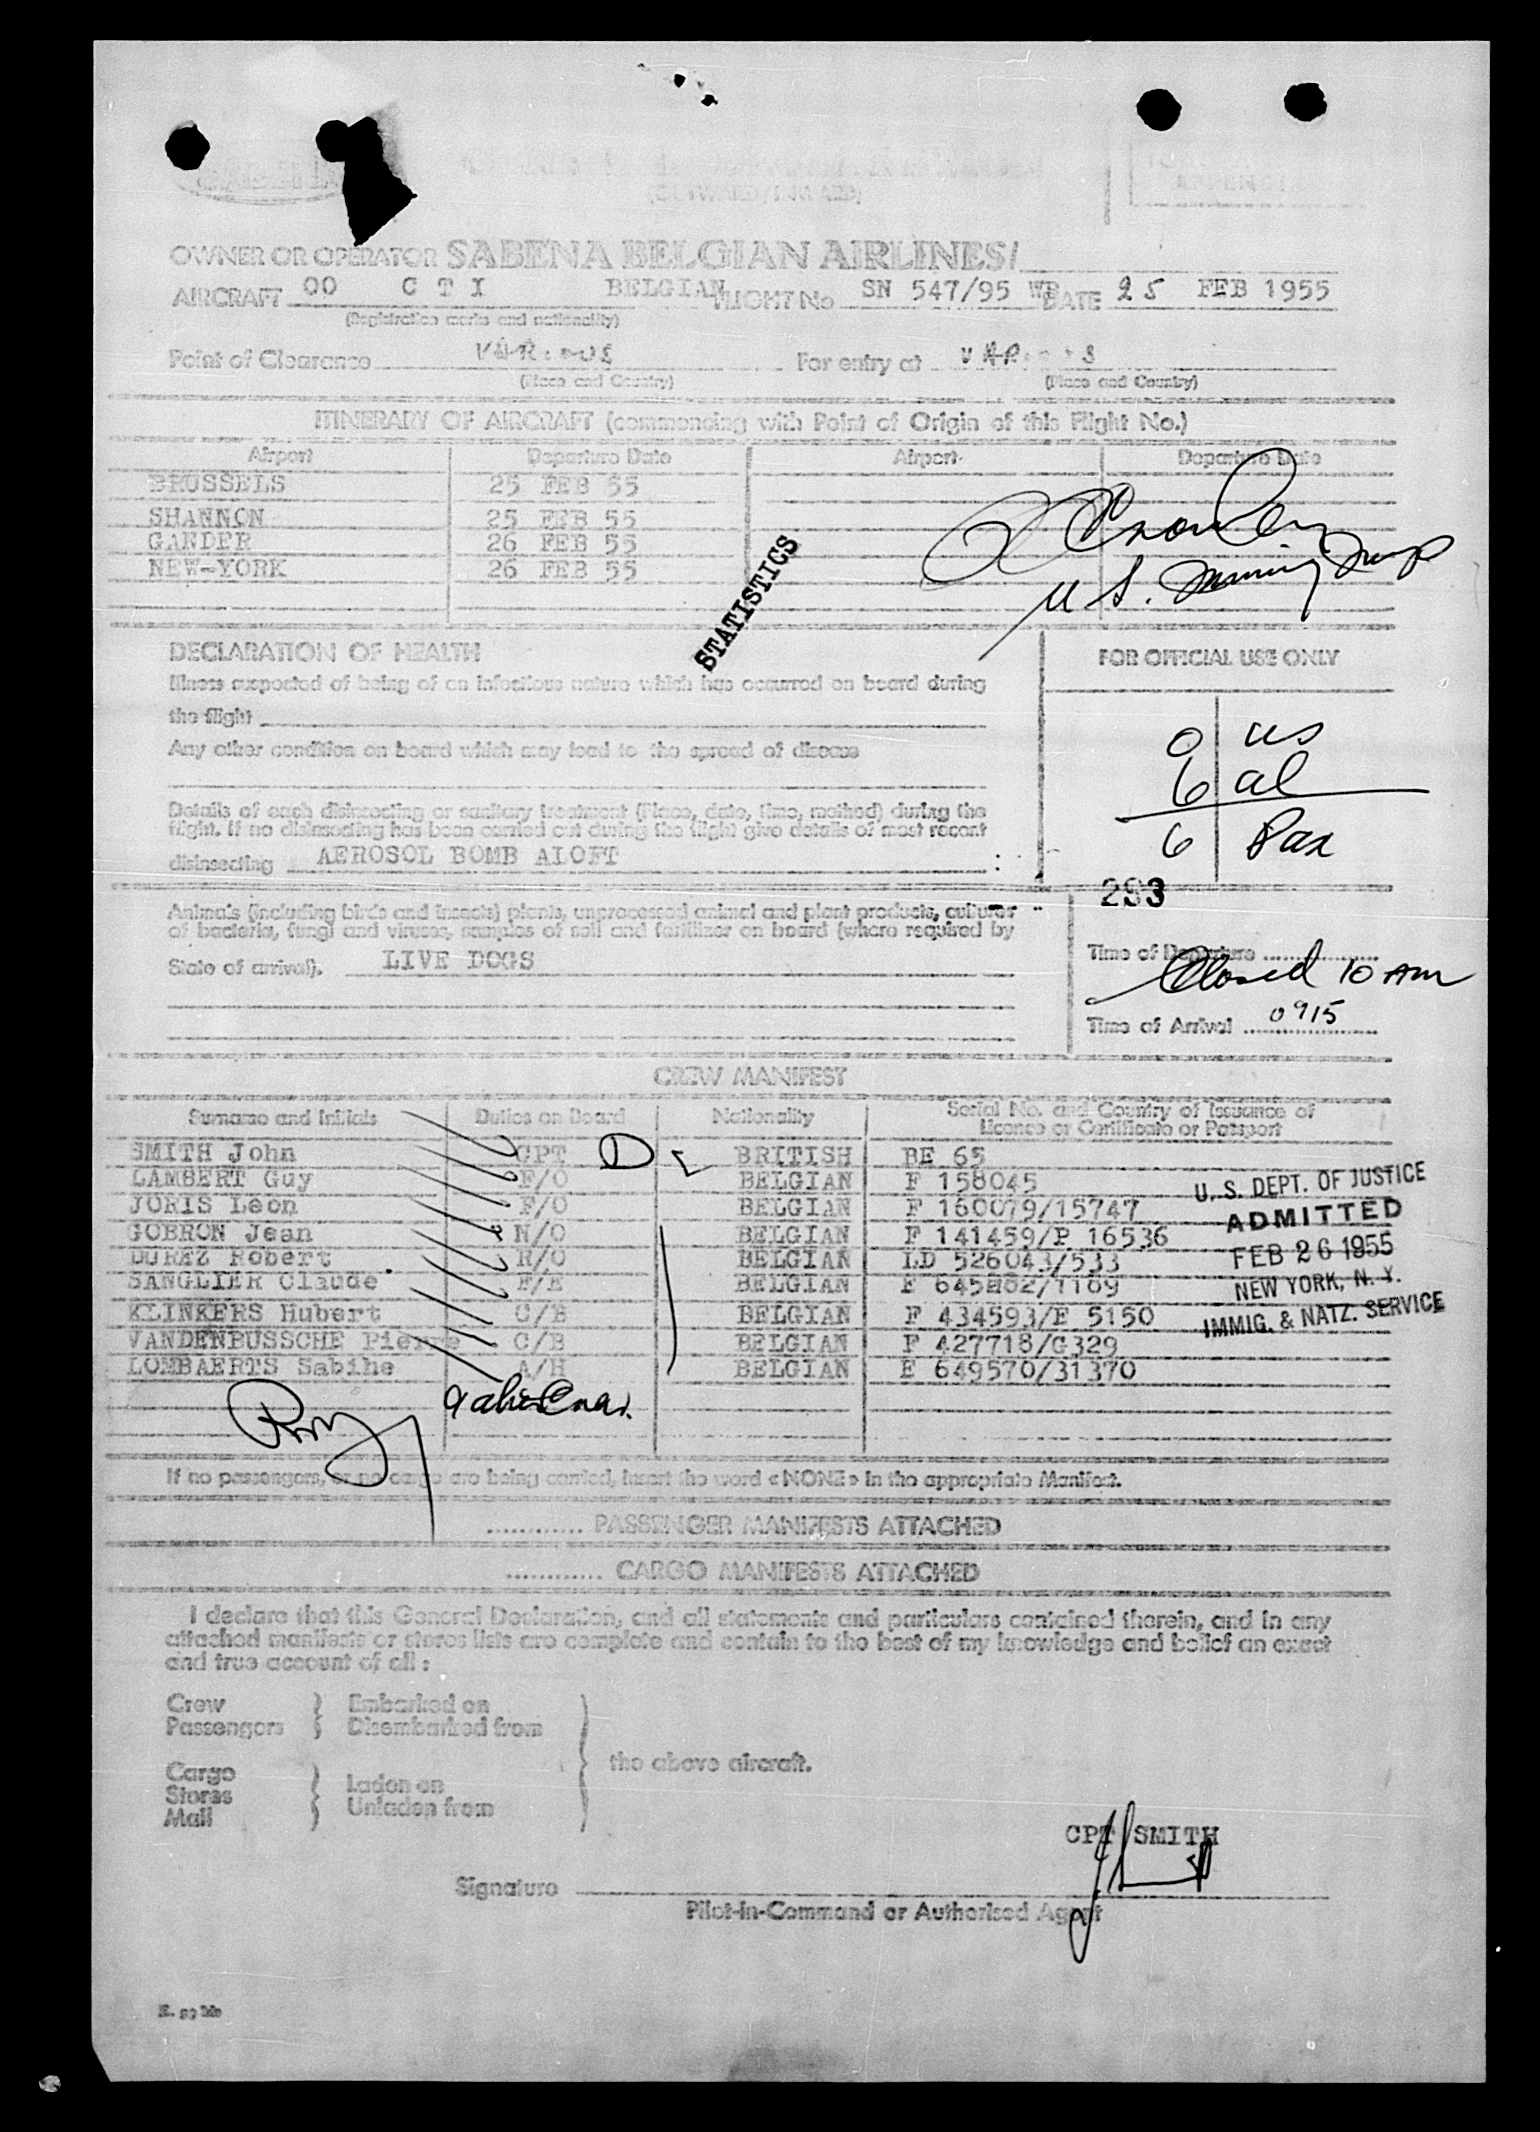 (OUTWARD/INWARD)
OWNER OR OPERATOR SABENA BELGIAN AIRLINES/
AIRCRAFT OO C T I BELGIAN FLIGHT No SN 547/95 WB DATE 25 FEB 1955
(Registration marks and nationality)
Point of Clearance VARIOUS For entry at VARIOUS
(Place and Country) (Place and Country)
ITINERARY OF AIRCRAFT (commencing with Point of Origin of this Flight No.)
Airport Departure Date Airport Departure Date
BRUSSELS 25 FEB 55
SHANNON 25 FEB 55
GANDER 26 FEB 55
NEW-YORK 26 FEB 55
STATISTICS
U.S.
DECLARATION OF HEALTH
FOR OFFICIAL USE ONLY
Illness suspected of being of an infectious nature which has occurred on board during
the flight
Any other condition on board which may lead to the spread of disease
0 us
6 al
6 Pax
Details of each disinsecting or sanitary treatment (Place, date, time, method) during the
flight. If no disinsecting has been carried out during the flight give details of most recent
disinsecting AEROSOL BOMB ALOFT
293
Animals (including birds and insects) plants, unprocessed animal and plant products, cultures
of bacteria, fungi and viruses, samples of soil and fertilizer on board (where required by
State of arrival). LIVE DOGS
Time of Departure
Closed 10 AM
Time of Arrival 0915
CREW MANIFEST
Surname and Initials Duties on Board Nationality Serial No. and Country of Issuance of
Licence or Certificate or Passport
SMITH John CPT D BRITISH BE 65
LAMBERT Guy F/O BELGIAN F 158045
JORIS Leon F/O BELGIAN F 160079/15747
GOBRON Jean N/O BELGIAN F 141459/P 16536
DUREZ Robert R/O BELGIAN LD 526043/533
SANGLIER Claude F/E BELGIAN F 645862/1169
KLINKERS Hubert C/B BELGIAN F 434593/E 5150
VANDENBUSSCHE Pierre C/B BELGIAN F 427718/G329
LOMBAERTS Sabine A/H BELGIAN E 649570/31370
U. S. DEPT. OF JUSTICE
ADMITTED
FEB 26 1955
NEW YORK, N. Y.
IMMIG. & NATZ. SERVICE
If no passengers, or no cargo are being carried, insert the word «NONE» in the appropriate Manifest.
............ PASSENGER MANIFESTS ATTACHED
............ CARGO MANIFESTS ATTACHED
I declare that this General Declaration, and all statements and particulars contained therein, and in any
attached manifests or stores lists are complete and contain to the best of my knowledge and belief an exact
and true account of all :
Crew } Embarked on
Passengers } Disembarked from
the above aircraft.
Cargo
Stores } Laden on
Mail } Unladen from
CPT SMITH
Signature
Pilot-in-Command or Authorised Agent